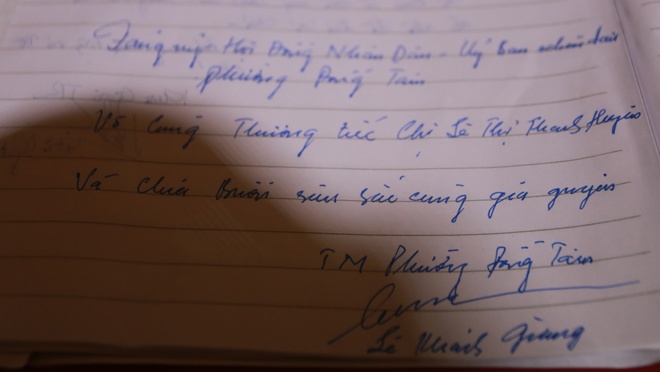 Đảng ủy Hội Đồng Nhân Dân - Uỷ ban nhân dân
phường Đông Tâm
Vô Cùng Thương tiếc Chị Lê Thị Thanh Huyền
Và Chia Buồn sâu sắc cùng gia quyến
TM Phường Đông Tâm
Lê Khánh Giang